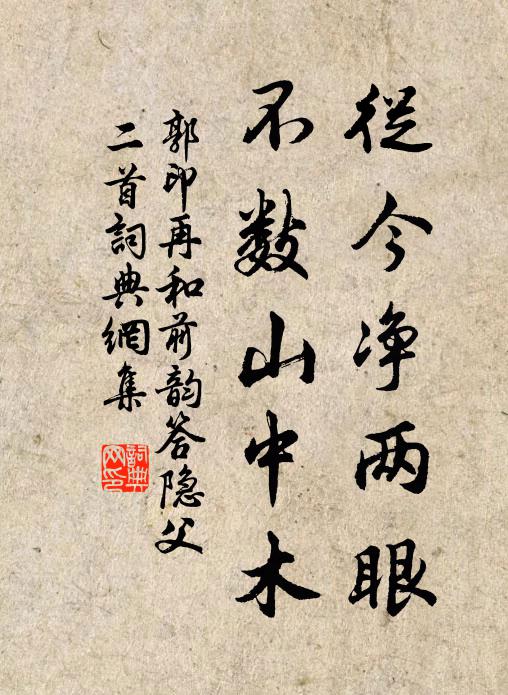 從今净两眼
不数山中木
郭印再和前韵答隐父
二首詞典網集
詞典
网印